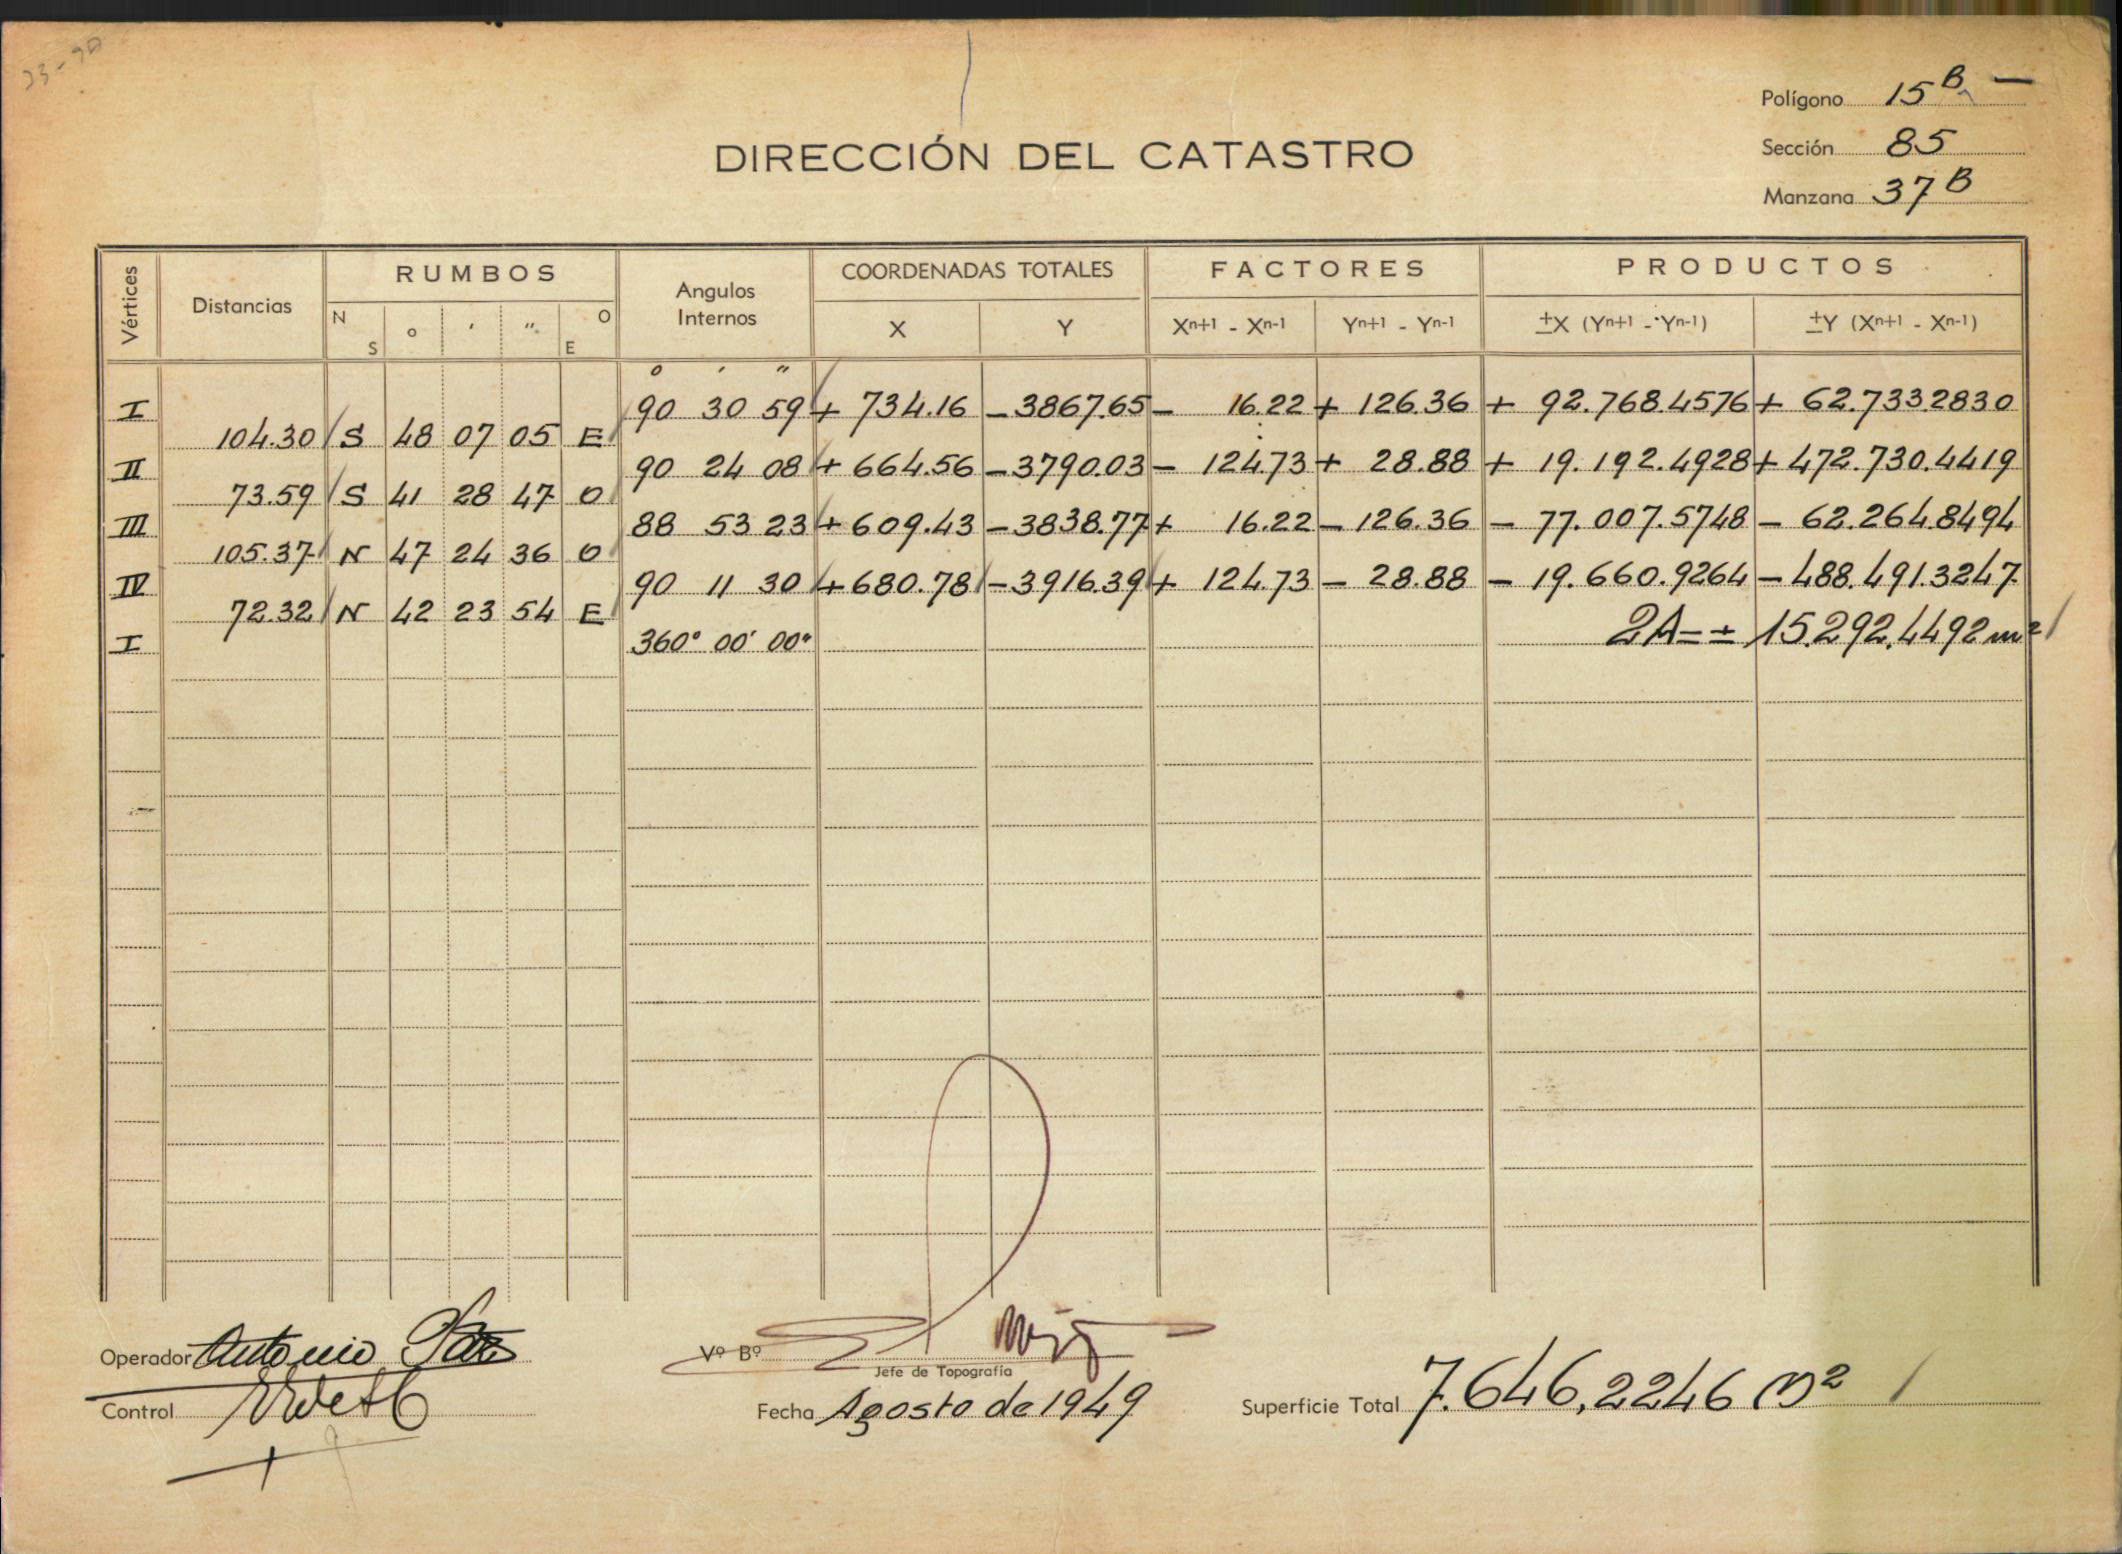 23-90
Polígono 15 B —
Sección 85
Manzana 37 B
DIRECCIÓN DEL CATASTRO
Vértices Distancias RUMBOS Angulos Internos COORDENADAS TOTALES FACTORES PRODUCTOS
N S o ' " O E X Y Xn+1 - Xn-1 Yn+1 - Yn-1 ±X (Yn+1 - Yn-1) ±Y (Xn+1 - Xn-1)
o ' "
I 90 30 59 + 734.16 - 3867.65 - 16.22 + 126.36 + 92.768.4576 + 62.733.2830
104.30 S 48 07 05 E
II 90 24 08 + 664.56 - 3790.03 - 124.73 + 28.88 + 19.192.4928 + 472.730.4419
73.59 S 41 28 47 O
III 88 53 23 + 609.43 - 3838.77 + 16.22 - 126.36 - 77.007.5748 - 62.264.8494
105.37 N 47 24 36 O
IV 90 11 30 + 680.78 - 3916.39 + 124.73 - 28.88 - 19.660.9264 - 488.491.3247
72.32 N 42 23 54 E
I 360° 00' 00" 2A = ± 15.292.4492 m²
Operador Antonio
Vº Bº
Jefe de Topografía
Control
Fecha Agosto de 1949
Superficie Total 7.646,2246 m²